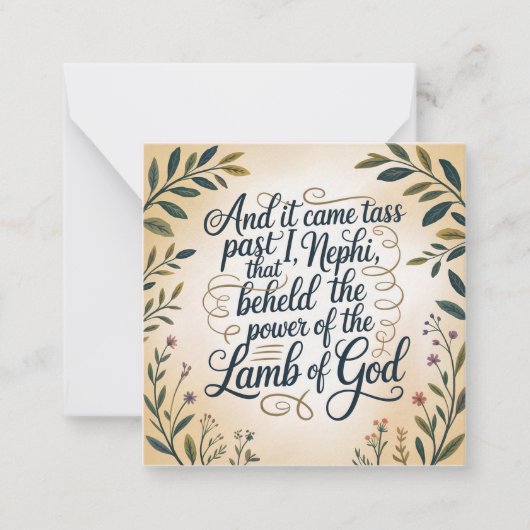 And it came tass
past I, Nephi,
that
beheld the
power of the
Lamb of God